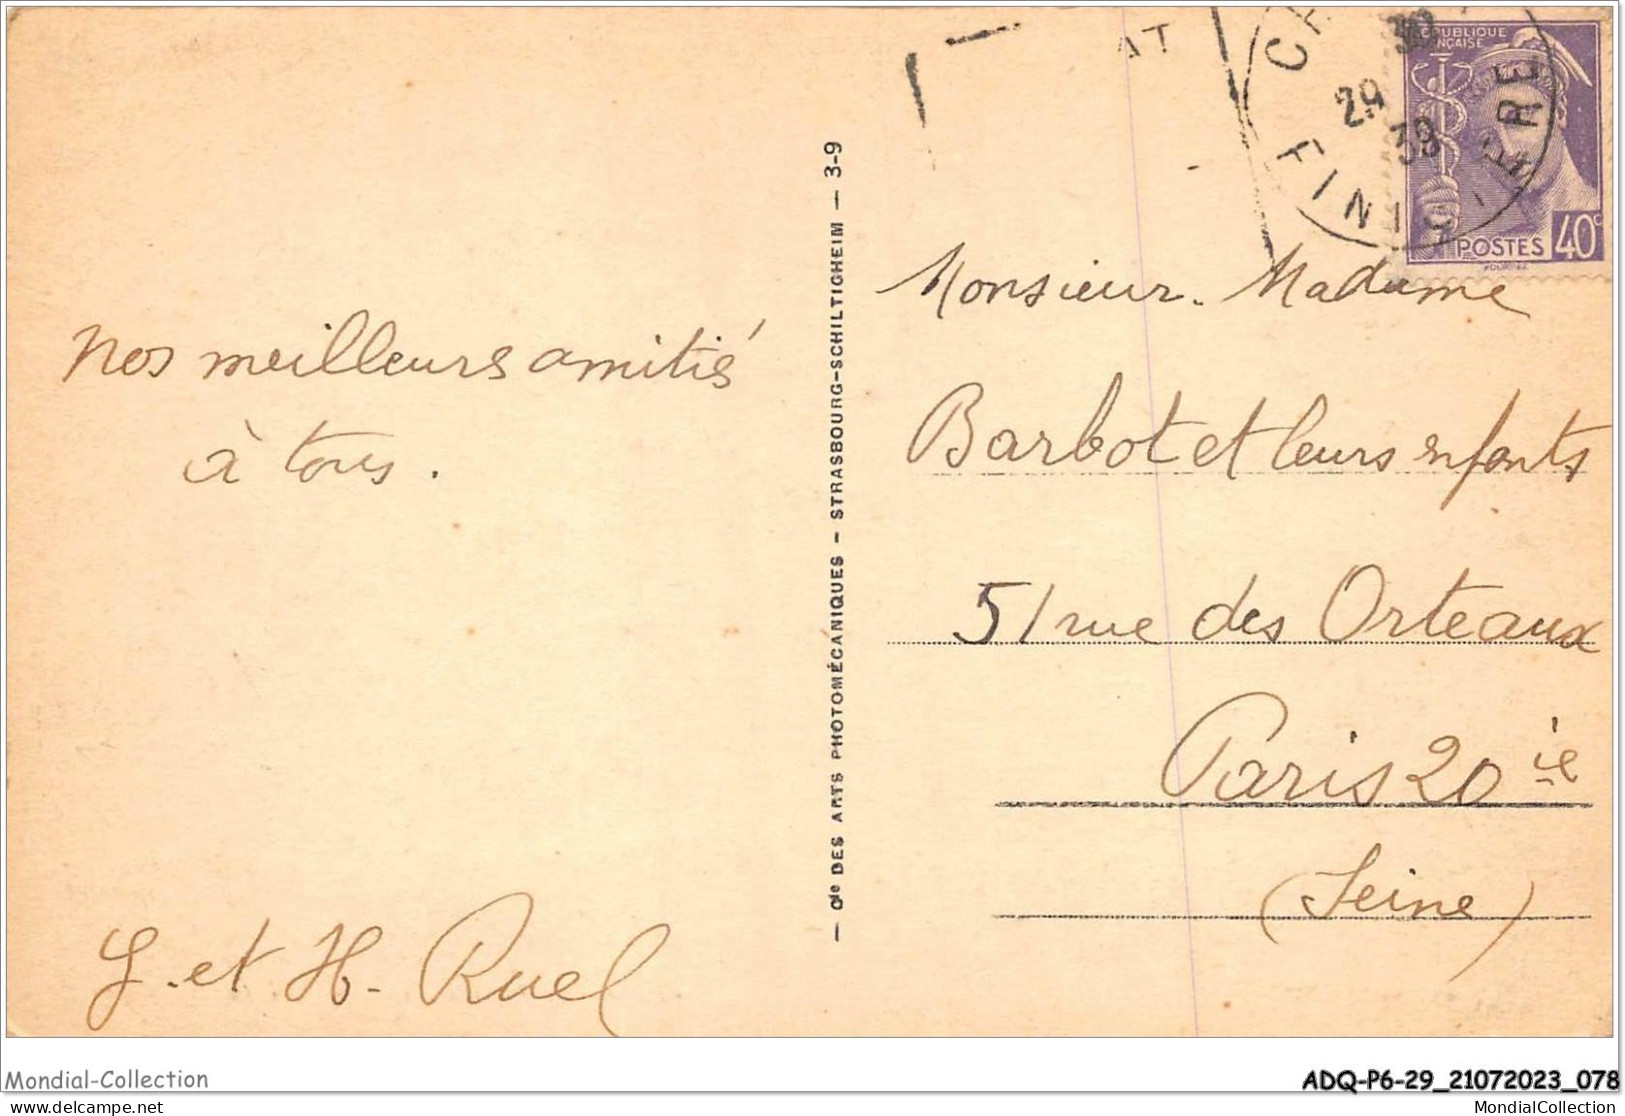 Nos meilleurs amitiés
à tous.
G. et H. Ruel
Cie DES ARTS PHOTOMÉCANIQUES – STRASBOURG-SCHILTIGHEIM — 3-9
AT
FINISTERE
30
29
39
RÉPUBLIQUE
FRANÇAISE
POSTES 40c
Monsieur. Madame
Barbot et leurs enfants
51 rue des Orteaux
Paris 20 ie
(Seine)
Mondial-Collection
ADQ-P6-29_21072023_078
www.delcampe.net
MondialCollection